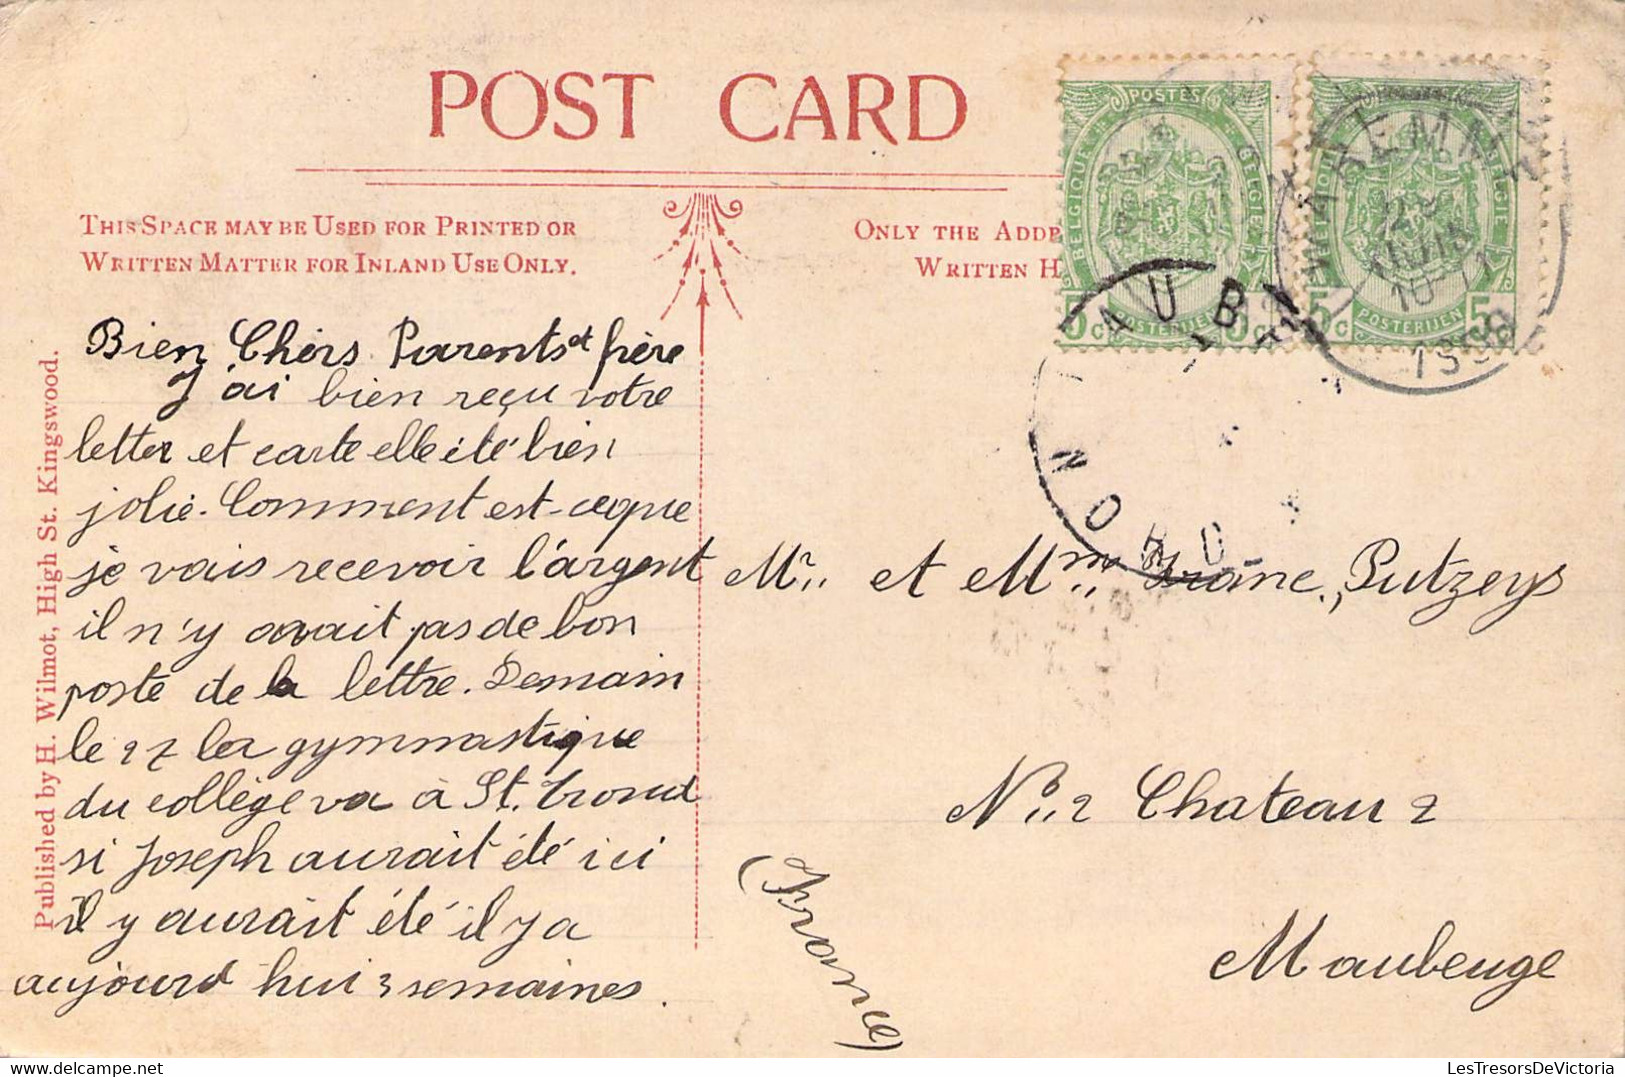 POST CARD
THIS SPACE MAY BE USED FOR PRINTED OR
WRITTEN MATTER FOR INLAND USE ONLY.
ONLY THE ADD
WRITTEN H
Published by H. Wilmot, High St. Kingswood.
POSTES
BELGIQUE BELGIE
5c 5c
POSTERIJEN
BELGIE
5c 5c
POSTERIJEN
WAREMME
JUIN
10-11
AUB
NORD
Bien Chers Parents et frère
J'ai bien reçu votre
letter et carte elle été bien
jolie. Comment est-ceque
je vais recevoir l'argent
il n'y avait pas de bon
poste de la lettre. Demain
le 27 la gymnastique
du collège va à St. Trond
si Joseph aurait été ici
il y aurait été il y a
aujourd hui 3 semaines.
Mr. et Mme Franc. Putzeys
No. 2 Chateau 2
Maubeuge
(France)
LesTresorsDeVictoria